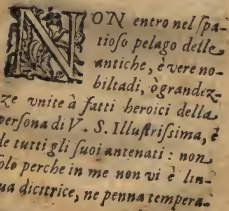 NON entro nel ſpa-
tioſo pelago delle
antiche, è vere no-
biltadi, ò grandez-
ze vnite à fatti heroici della
perſona di V. S. Illuſtriſſima, è
le tutti gli ſuoi antenati: non
olo perche in me non vi è lin-
ua dicitrice, ne penna tempera-